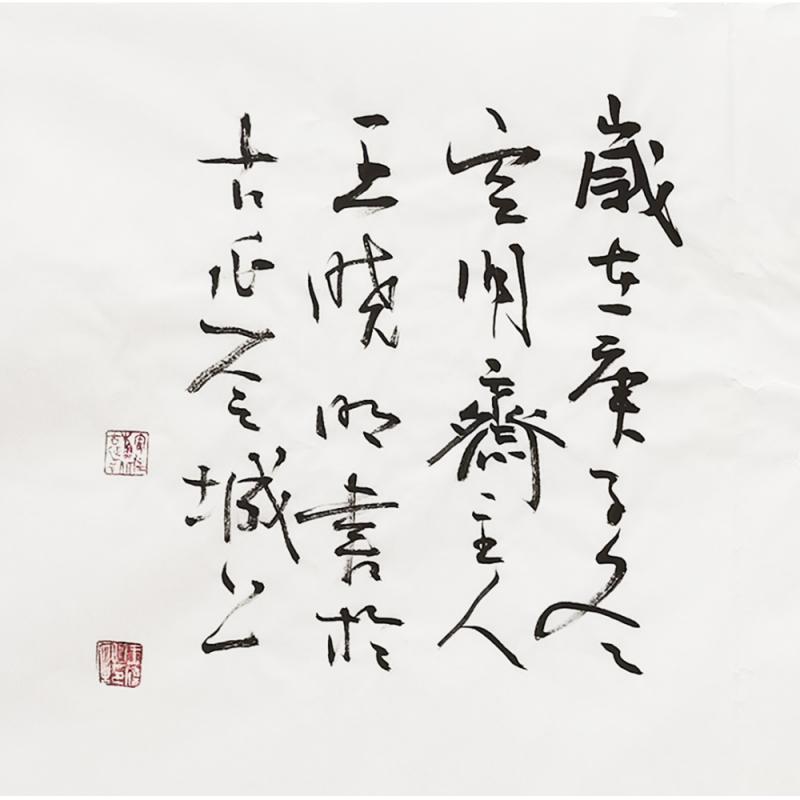 歲在庚子冬
空明齋主人
王曉明書於
古延令城上